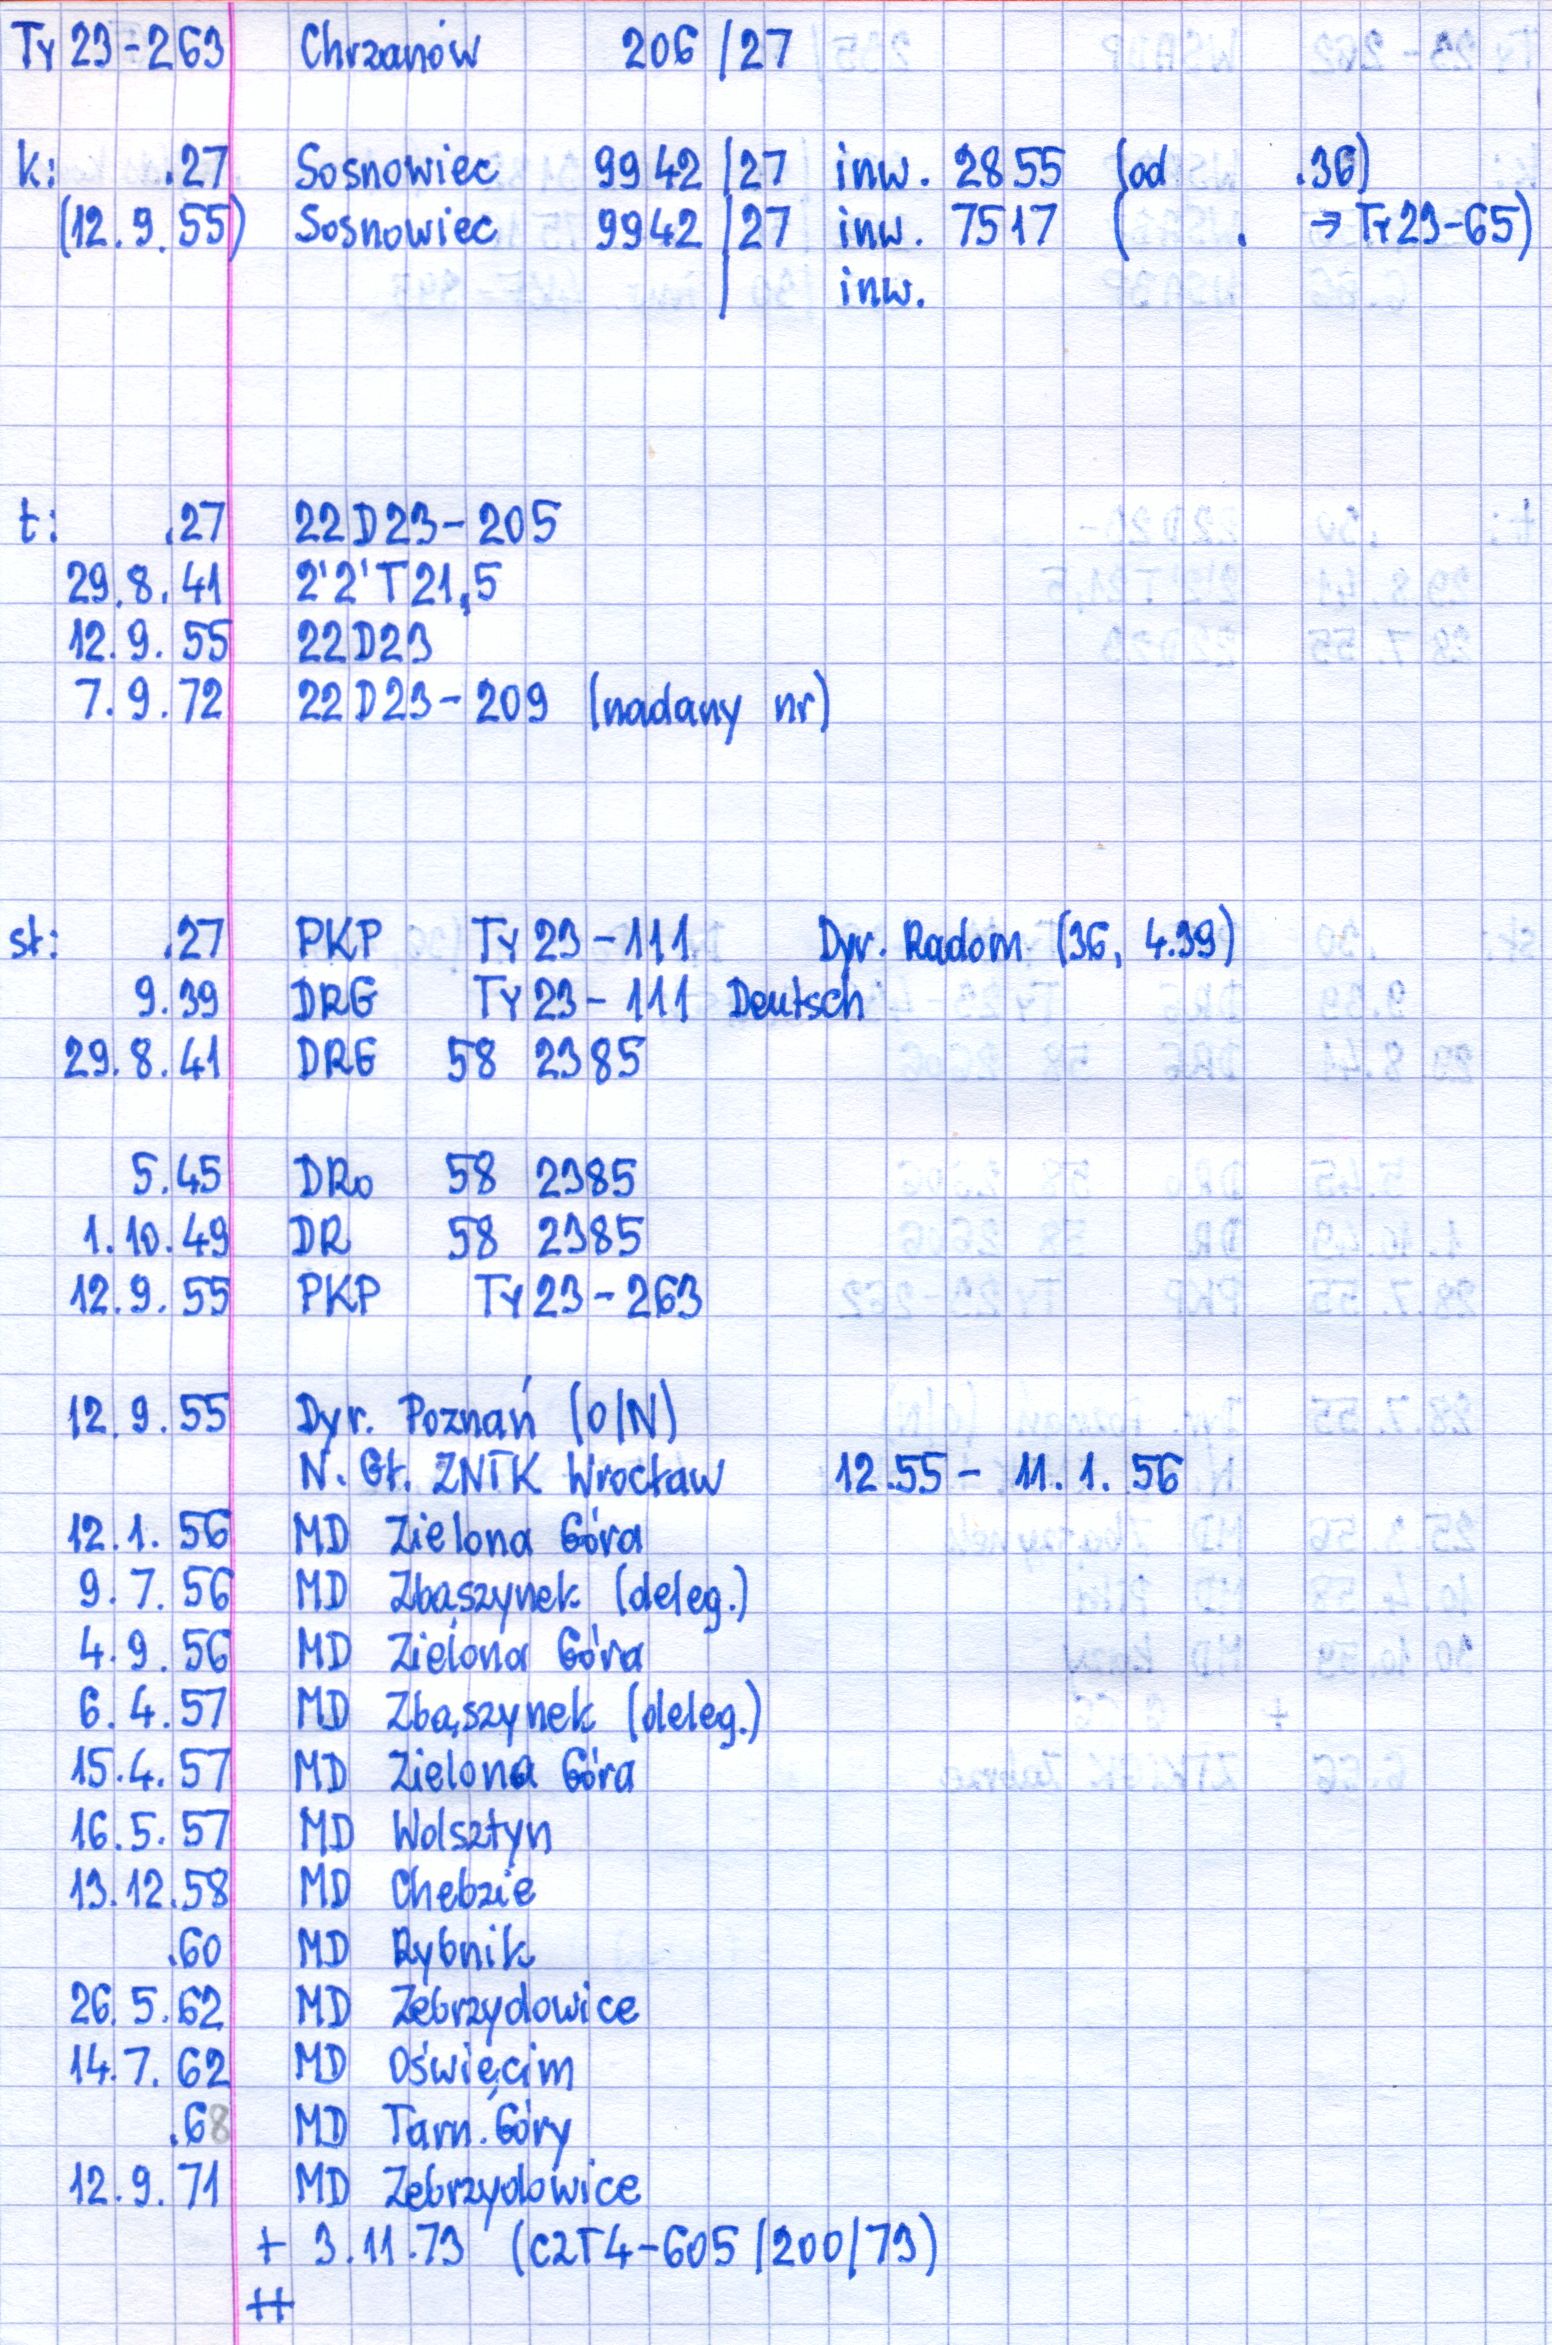 Ty 23-263 Chrzanów 206/27
k: .27 Sosnowiec 9942/27 inw. 2855 (od .36)
(12.9.55) Sosnowiec 9942/27 inw. 7517 ( . → Ty23-65)
/ inw.
t: .27 22D23-205
29.8.41 2'2'T21,5
12.9.55 22D23
7.9.72 22D23-209 (nadany nr)
st: .27 PKP Ty23-111 Dyr. Radom (36, 4.39)
9.39 DRG Ty23-111 Deutsch
29.8.41 DRG 58 2385
5.45 DRo 58 2385
1.10.49 DR 58 2385
12.9.55 PKP Ty23-263
12.9.55 Dyr. Poznań (O/N)
N. Gł. ZNTK Wrocław 12.55 - 11.1.56
12.1.56 MD Zielona Góra
9.7.56 MD Zbąszynek (deleg.)
4.9.56 MD Zielona Góra
6.4.57 MD Zbąszynek (deleg.)
15.4.57 MD Zielona Góra
16.5.57 MD Wolsztyn
13.12.58 MD Chebzie
.60 MD Rybnik
26.5.62 MD Zebrzydowice
14.7.62 MD Oświęcim
.68 MD Tarn. Góry
12.9.71 MD Zebrzydowice
+ 3.11.73 (C2T4-605/200/73)
++